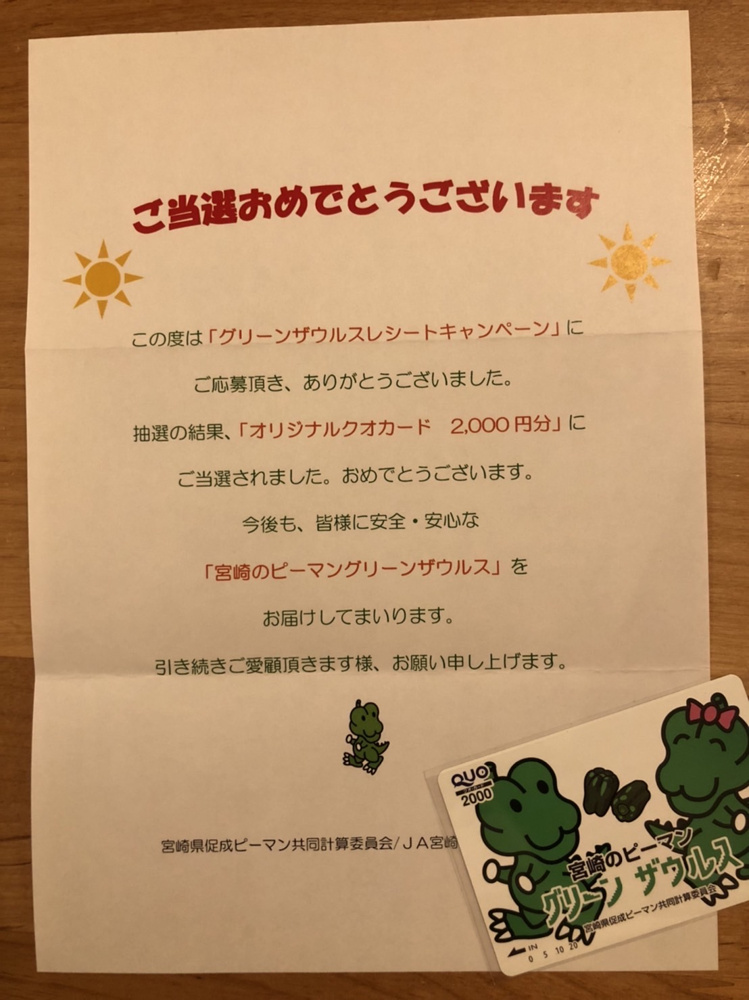 ご当選おめでとうございます
この度は「グリーンザウルスレシートキャンペーン」に
ご応募頂き、ありがとうございました。
抽選の結果、「オリジナルクオカード　2,000円分」に
ご当選されました。おめでとうございます。
今後も、皆様に安全・安心な
「宮崎のピーマングリーンザウルス」を
お届けしてまいります。
引き続きご愛顧頂きます様、お願い申し上げます。
宮崎県促成ピーマン共同計算委員会/ＪＡ宮崎
QUO
2000
宮崎のピーマン
グリーン ザウルス
宮崎県促成ピーマン共同計算委員会
IN
0 5 10 20